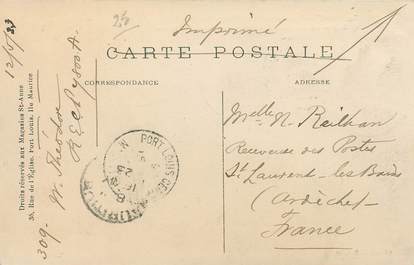 Imprimé
CARTE POSTALE
CORRESPONDANCE
ADRESSE
Melle N. Reilhan
Receveuse des Postes
St Laurent-les-Bains
(Ardèche)
France
Droits réservés aux Magasins St-Anne
30, Rue de l'Eglise, Port Louis, Ile Maurice
309. W. Théodor
12/5/
PORT LOUIS